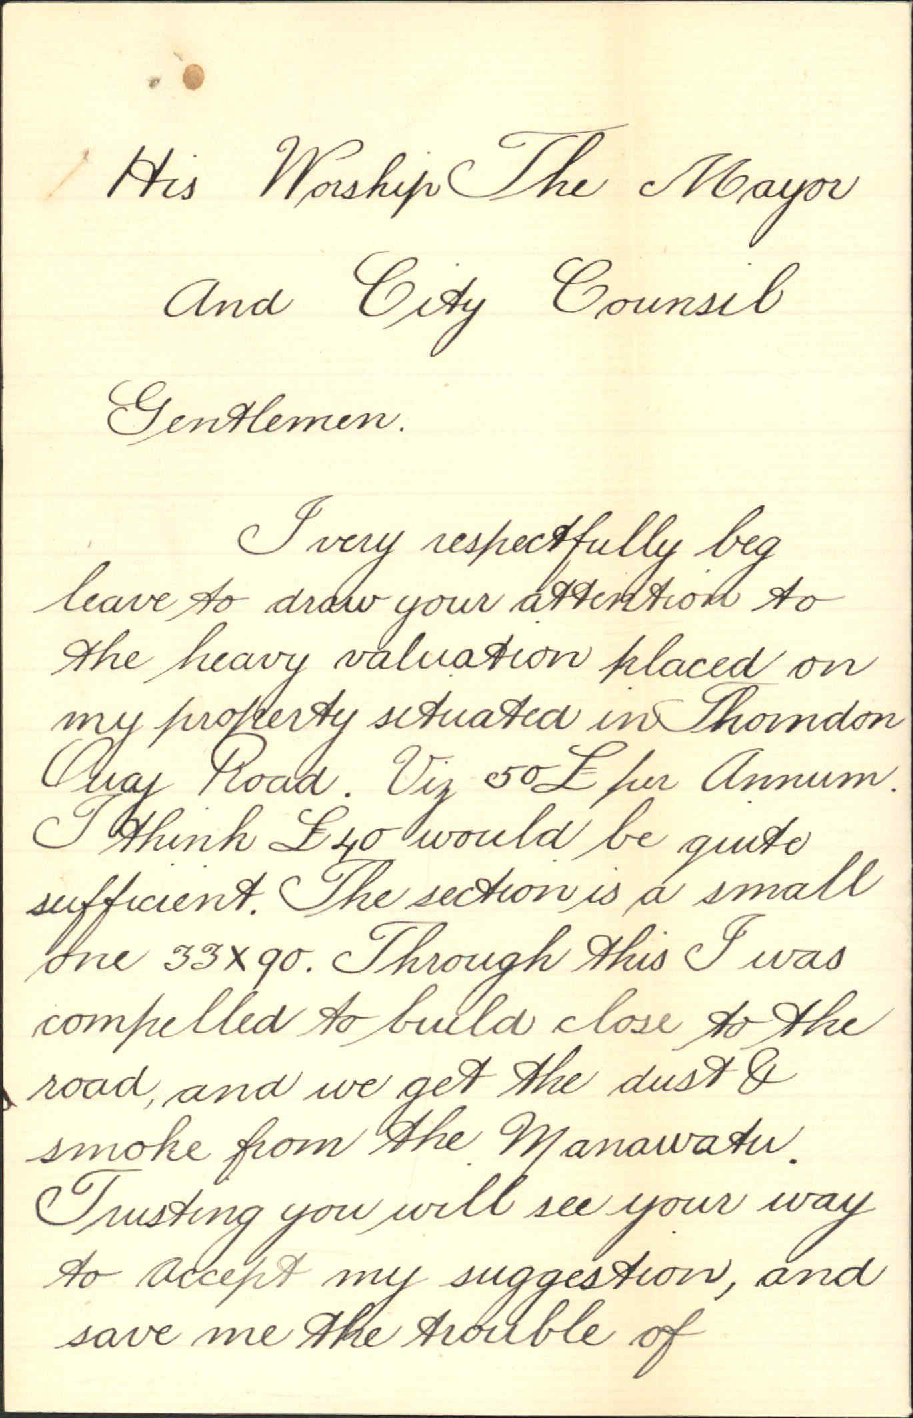 His Worship The Mayor
And City Counsil
Gentlemen.
I very respectfully beg
leave to draw your attention to
the heavy valuation placed on
my property situated in Thorndon
Quay Road. Viz 50£ per Annum.
I think £40 would be quite
sufficient. The section is a small
one 33x90. Through this I was
compelled to build close to the
road, and we get the dust &
smoke from the Manawatu.
Trusting you will see your way
to accept my suggestion, and
save me the trouble of